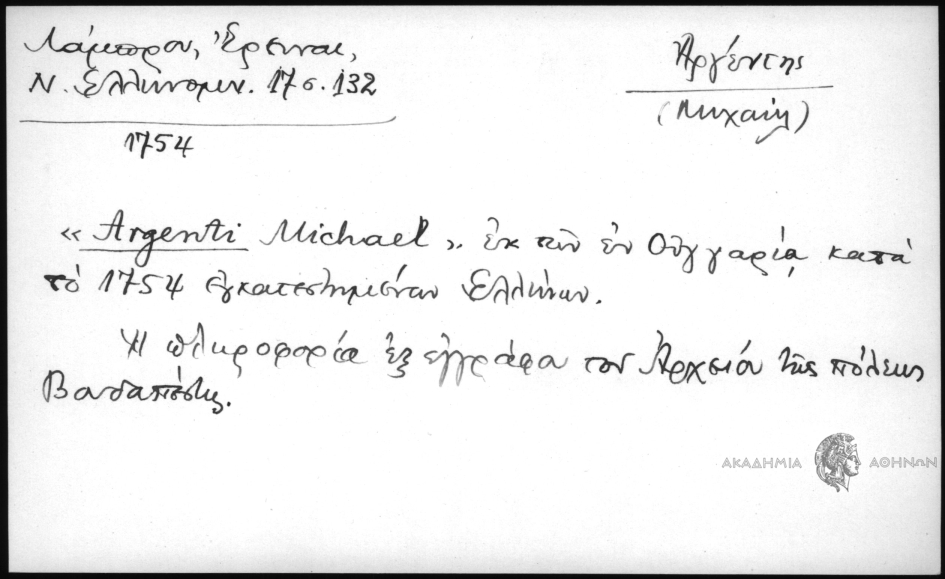 Λάμπρου, Ἔρευναι,
Ν. Ἑλληνομν. 17 σ. 132
1754
Ἀργέντης
(Μιχαήλ)
« Argenti Michael », ἐκ τῶν ἐν Οὑγγαρίᾳ κατὰ
τὸ 1754 ἐγκατεστημένων Ἑλλήνων.
Ἡ πληροφορία ἐξ ἐγγράφου τοῦ Ἀρχείου τῆς πόλεως
Βουδαπέστης.
ΑΚΑΔΗΜΙΑ ΑΘΗΝΩΝ